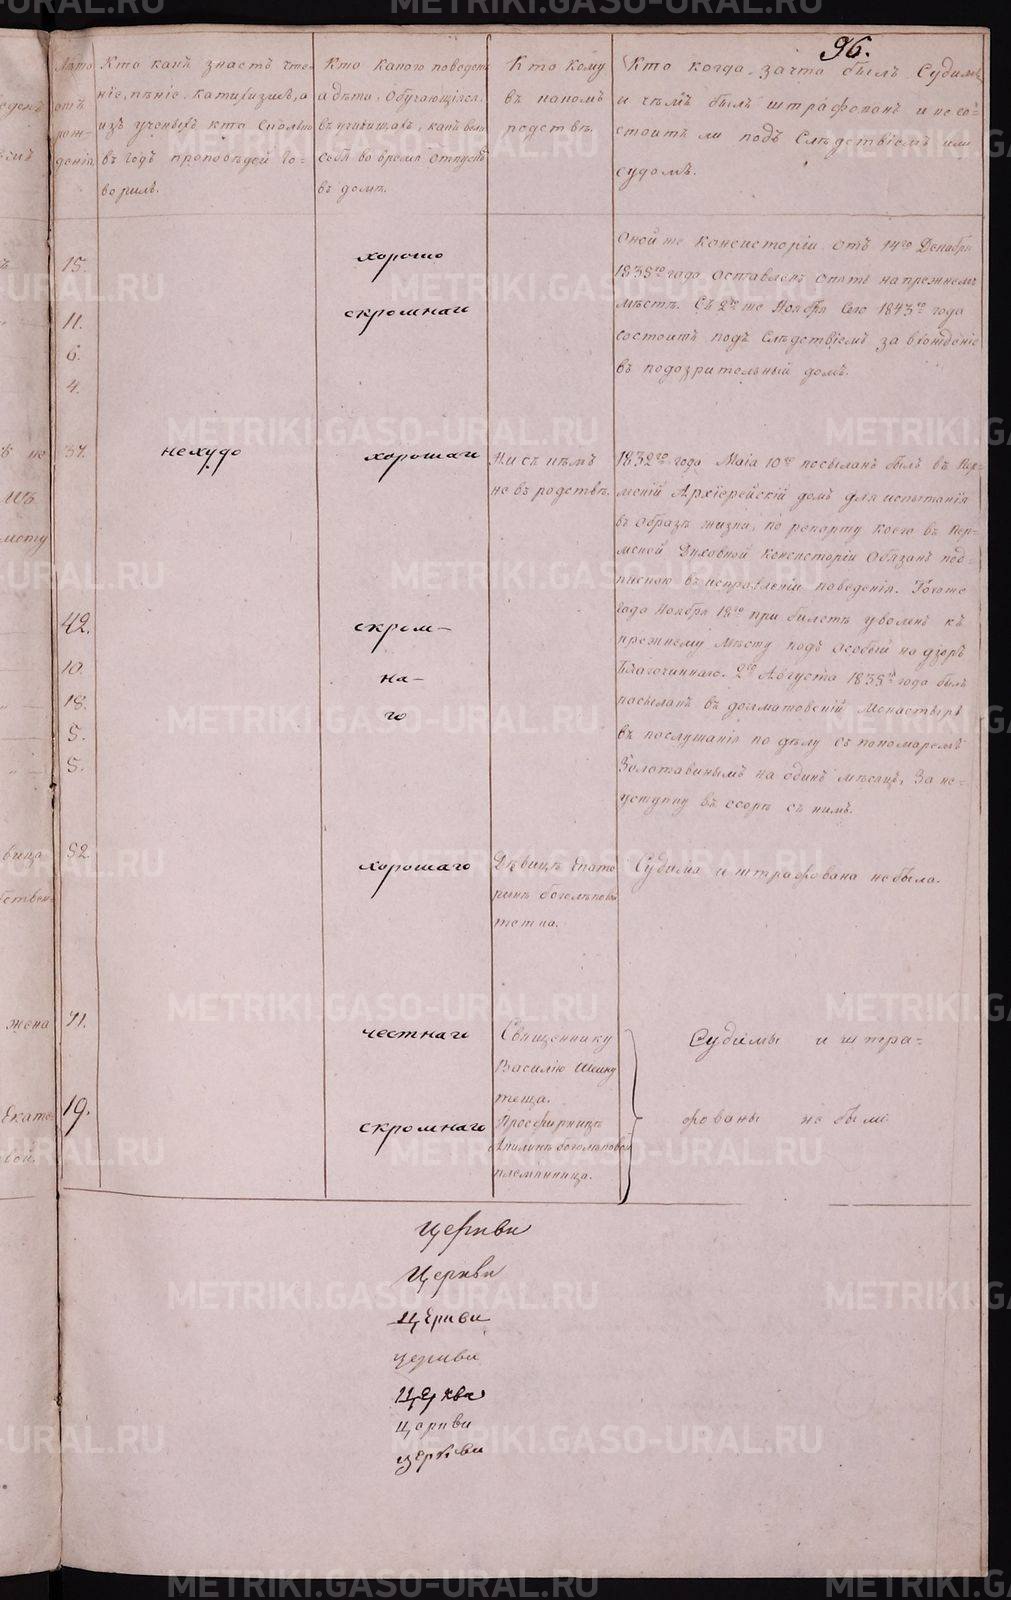 96.
Лѣта
отъ
рож-
денія
Кто какъ знаетъ чте-
ніе, пѣніе, катихизисъ, а
изъ ученыхъ кто сколько
въ годъ проповѣдей го-
ворилъ.
Кто какого поведен.
а дѣти, обучающіяся
въ училищахъ, какъ вели
себя во время отпуска
въ домъ.
Кто кому
въ какомъ
родствѣ.
Кто когда, за что былъ судимъ
и чѣмъ былъ штрафованъ и не со-
стоитъ ли подъ слѣдствіемъ или
судомъ.
15.
11.
6.
4.
хорошо
скромнаго
Оной же консисторіи отъ 14го Декабря
1838го года оставленъ опять на прежнемъ
мѣстѣ. Съ 2го же Ноября сего 1843го года
состоитъ подъ слѣдствіемъ за вхожденіе
въ подозрительный домъ.
37.
нехудо
хорошаго
Ни съ кѣмъ
не въ родствѣ.
1832го года Маіа 10го посыланъ былъ въ Пер-
мскій Архіерейскій домъ для испытанія
въ образѣ жизни, по репорту коего въ Пер-
мской Духовной Консисторіи обязанъ под-
пискою въ исправленіи поведенія. Тогоже
года Ноября 18го при билетѣ уволенъ къ
прежнему мѣсту подъ особый надзоръ
Благочиннаго. 2го Августа 1835го года былъ
посыланъ въ долматовскій Монастырь
въ послушанія по дѣлу съ пономаремъ
Золотавинымъ на одинъ мѣсяцъ, за не-
уступку въ ссорѣ съ нимъ.
42.
10.
18.
5.
5.
скром-
на-
го
52.
хорошаго
Дѣвицѣ Екате
ринѣ боголѣпово
тетка.
Судима и штрафована небыла.
71.
честнаго
Священнику
Василію
теща.
19.
скромнаго
Просфирницѣ
боголѣповой
племянница.
Судимы и штра-
фованы не были
Церкви
Церкви
Церкви
церкви
Церкви
церкви
церкви
METRIKI.GASO-URAL.RU